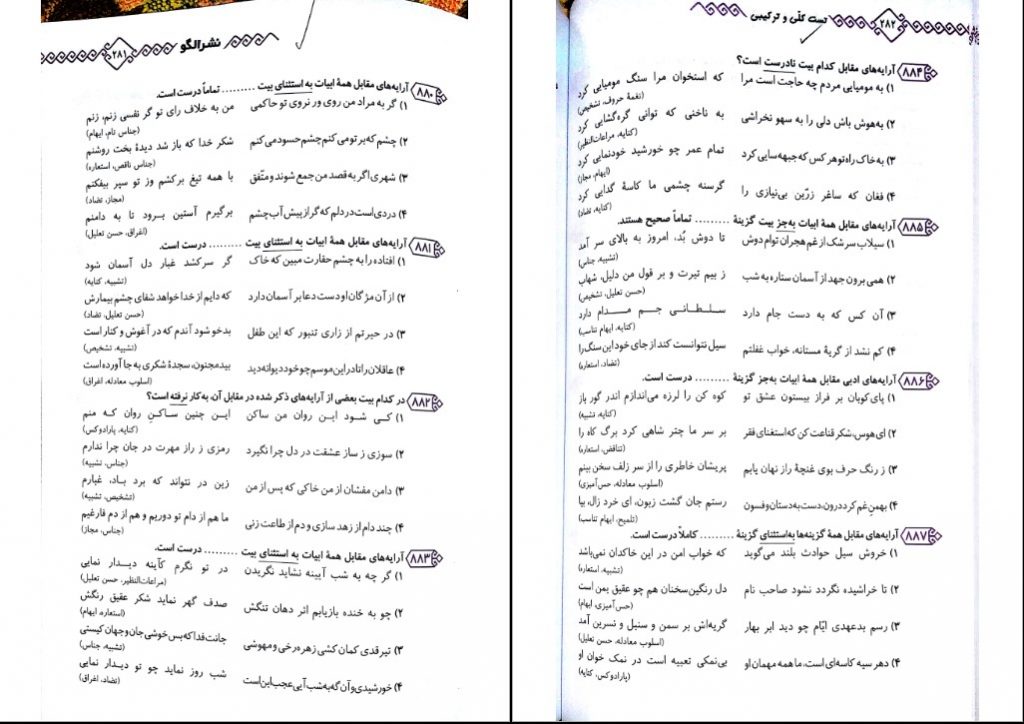 نشر الگو ۲۸۱
۸۸۰ آرایه‌های مقابل همهٔ ابیات به استثنای بیت ......... تماماً درست است.
۱) گر به مراد من روی ور نروی تو حاکمی من به خلاف رای تو گر نفسی زنم، زنم
(جناس تام، ایهام)
۲) چشم که بر تو می کنم چشم حسود می کنم شکر خدا که باز شد دیدهٔ بخت روشنم
(جناس ناقص، استعاره)
۳) شهری اگر به قصد من جمع شوند و متّفق با همه تیغ برکشم وز تو سپر بیفکنم
(مجاز، تضاد)
۴) دردی است در دلم که گر از پیش آب چشم برگیرم آستین برود تا به دامنم
(اغراق، حسن تعلیل)
۸۸۱ آرایه‌های مقابل همهٔ ابیات به استثنای بیت ......... درست است.
۱) افتاده را به چشم حقارت مبین که خاک گر سرکشد غبار دل آسمان شود
(تشبیه، کنایه)
۲) از آن مژگان او دست دعا بر آسمان دارد که دایم از خدا خواهد شفای چشم بیمارش
(حسن تعلیل، تضاد)
۳) در حیرتم از زاری تنبور که این طفل بدخو شود آندم که در آغوش و کنار است
(تشبیه، تشخیص)
۴) عاقلان را تا در این موسم چو خود دیوانه دید بید مجنون، سجدهٔ شکری به جا آورده است
(اسلوب معادله، اغراق)
۸۸۲ در کدام بیت بعضی از آرایه‌های ذکر شده در مقابل آن، به‌کار نرفته است؟
۱) کی شود این روان من ساکن این چنین ساکنِ روان که منم
(کنایه، پارادوکس)
۲) سوزی ز ساز عشقت در دل چرا نگیرد رمزی ز راز مهرت در جان چرا ندارم
(جناس، تشبیه)
۳) دامن مفشان از من خاکی که پس از من زین در نتواند که برد باد، غبارم
(تشخیص، تشبیه)
۴) چند دام از زهد سازی و دم از طاعت زنی ما هم از دام تو دوریم و هم از دم فارغیم
(جناس، مجاز)
۸۸۳ آرایه‌های مقابل همهٔ ابیات به استثنای بیت ......... درست است.
۱) گر چه به شب آیینه نشاید نگریدن در تو نگرم کآینه دیـدار نمایی
(مراعات‌النظیر، حسن تعلیل)
۲) چو به خنده بازیابم اثر دهان تنگش صدف گهر نماید شکر عقیق رنگش
(استعاره، ایهام)
۳) تیر قدی کمان کشی زهره رخی و مهوشی جانت فدا که بس خوشی جان و جهان کیستی
(تشبیه، جناس)
۴) خورشیدی و آن گه به شب آیی عجب این است شب روز نماید چو تو دیـدار نمایی
(تضاد، اغراق)
تست کلّی و ترکیبی ۲۸۲
۸۸۴ آرایه‌های مقابل کدام بیت نادرست است؟
۱) به مومیایی مردم چه حاجت است مرا که استخوان مرا سنگ مومیایی کرد
(نغمهٔ حروف، تشخیص)
۲) به‌هوش باش دلی را به سهو نخراشی به ناخنی که توانی گره‌گشایی کرد
(کنایه، مراعات‌النظیر)
۳) به خاک راه تو هر کس که جبهه‌سایی کرد تمام عمر چو خورشید خودنمایی کرد
(ایهام، مجاز)
۴) فغان که ساغر زرّین بی‌نیازی را گرسنه چشمی ما کاسهٔ گدایی کرد
(کنایه، تضاد)
۸۸۵ آرایه‌های مقابل همهٔ ابیات به‌جز بیت گزینهٔ ......... تماماً صحیح هستند.
۱) سیلاب سرشک از غم هجران توام دوش تا دوش بُد، امروز به بالای سر آمد
(تشبیه، جناس)
۲) همی برون جهد از آسمان ستاره به شب ز بیم تیرت و بر قول من دلیل، شهاب
(حسن تعلیل، تشخیص)
۳) آن کس که به دست جام دارد سـلـطـانـی جـم مـدام دارد
(کنایه، ایهام تناسب)
۴) کم نشد از گریهٔ مستانه، خواب غفلتم سیل نتوانست کند از جای خود این سنگ را
(تضاد، استعاره)
۸۸۶ آرایه‌های ادبی مقابل همهٔ ابیات به‌جز گزینهٔ ......... درست است.
۱) پای کوبان بر فراز بیستون عشق تو کوه کن را لرزه می‌اندازم اندر گور باز
(کنایه، تشبیه)
۲) ای هوس، شکر قناعت کن که استغنای فقر بر سر ما چتر شاهی کرد برگ کاه را
(تناقض، استعاره)
۳) ز رنگ حرف بوی غنچهٔ راز نهان یابم پریشان خاطری را از سر زلف سخن بینم
(اسلوب معادله، حس‌آمیزی)
۴) بهمنِ غم کرد درون، دست به دستان و فسون رستم جان گشت زبون، ای خرد زال، بیا
(تلمیح، ایهام تناسب)
۸۸۷ آرایه‌های مقابل همهٔ گزینه‌ها به‌استثنای گزینهٔ ......... کاملاً درست است.
۱) خروش سیل حوادث بلند می‌گوید که خواب امن در این خاکدان نمی‌باشد
(تشبیه، استعاره)
۲) تا خراشیده نگردد نشود صاحب نام دل رنگین سخنان هم چو عقیق یمن است
(حس‌آمیزی، ایهام)
۳) رسم بدعهدی ایّام چو دید ابر بهار گریه‌اش بر سمن و سنبل و نسرین آمد
(اسلوب معادله، حسن تعلیل)
۴) دهر سیه کاسه‌ای است، ما همه مهمان او بی‌نمکی تعبیه است در نمک خوان او
(پارادوکس، کنایه)